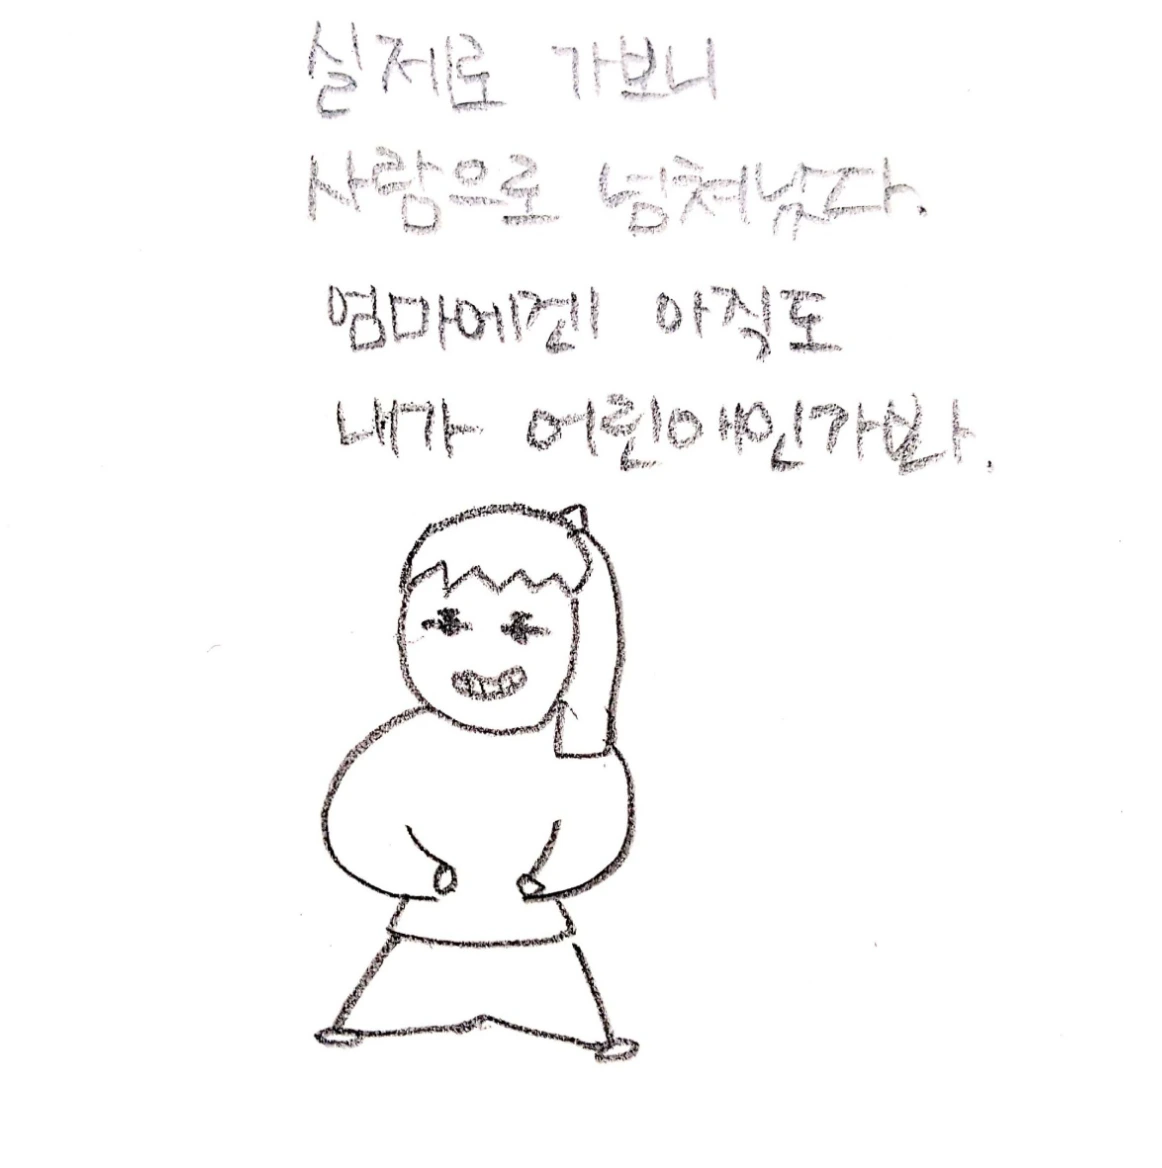 실제로 가보니
사람으로 넘쳐났다.
엄마에겐 아직도
내가 어린애인가봐.